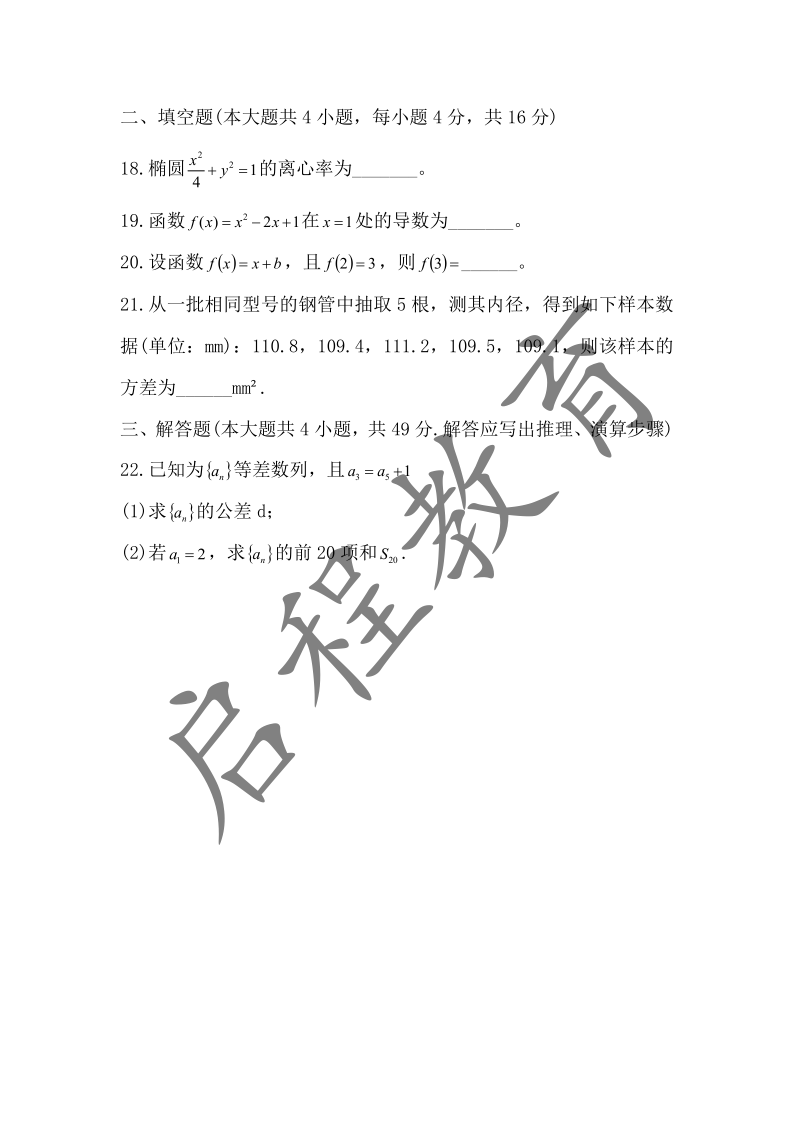 二、填空题(本大题共 4 小题，每小题 4 分，共 16 分)
18.椭圆 x²/4 + y² = 1 的离心率为_______。
19.函数 f(x) = x² − 2x + 1 在 x = 1 处的导数为_______。
20.设函数 f(x) = x + b，且 f(2) = 3，则 f(3) = ______。
21.从一批相同型号的钢管中抽取 5 根，测其内径，得到如下样本数
据(单位：mm)：110.8，109.4，111.2，109.5，109.1，则该样本的
方差为______mm².
三、解答题(本大题共 4 小题，共 49 分.解答应写出推理、演算步骤)
22.已知为{aₙ}等差数列，且 a₃ = a₅ + 1
(1)求{aₙ}的公差 d；
(2)若 a₁ = 2，求{aₙ}的前 20 项和 S₂₀.
启程教育